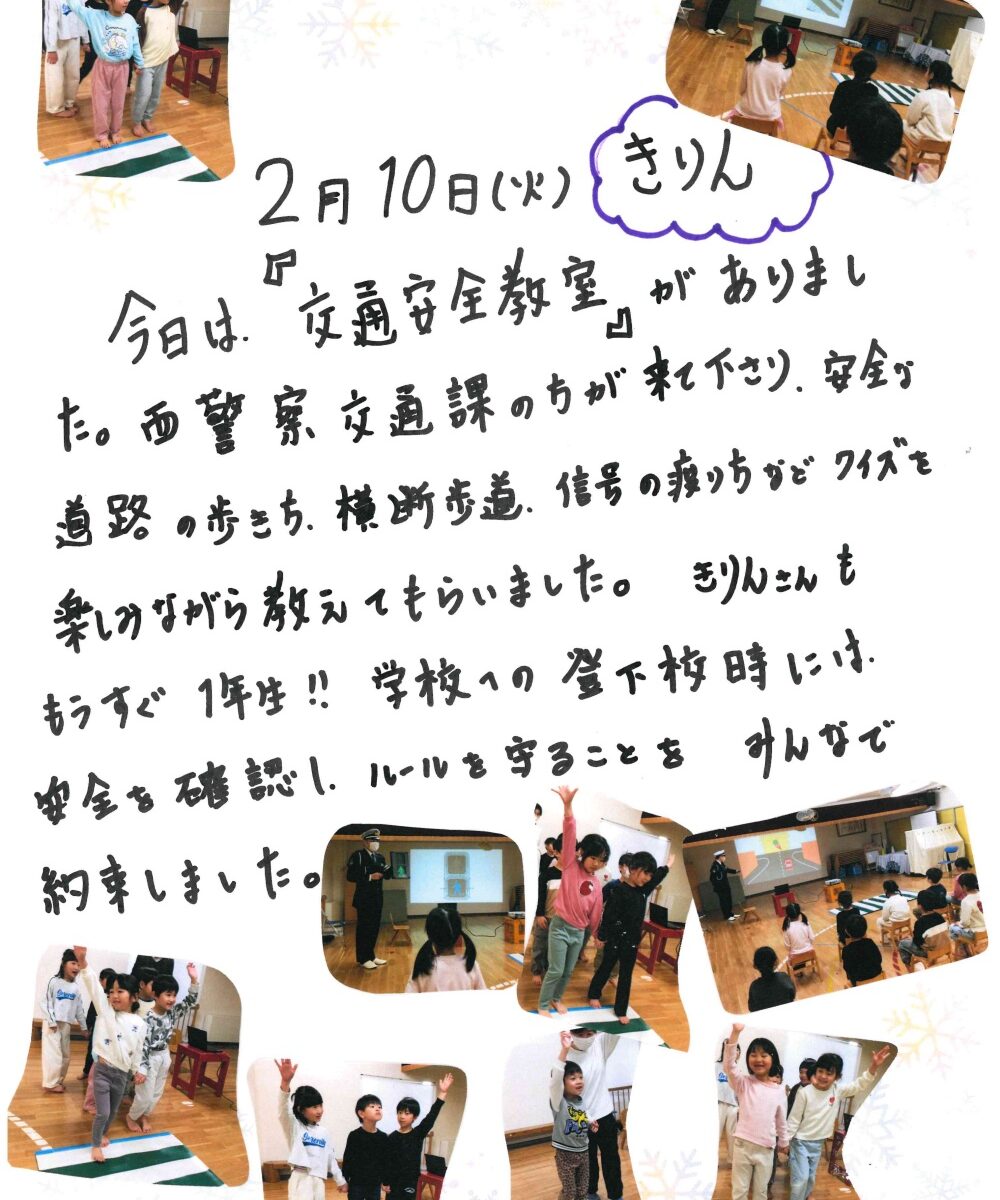 2月10日(火) きりん
今日は、『交通安全教室』がありまし
た。西警察交通課の方が来て下さり、安全な
道路の歩き方、横断歩道、信号の渡り方などクイズを
楽しみながら教えてもらいました。 きりんさんも
もうすぐ1年生!! 学校への登下校時には、
安全を確認し、ルールを守ることを みんなで
約束しました。